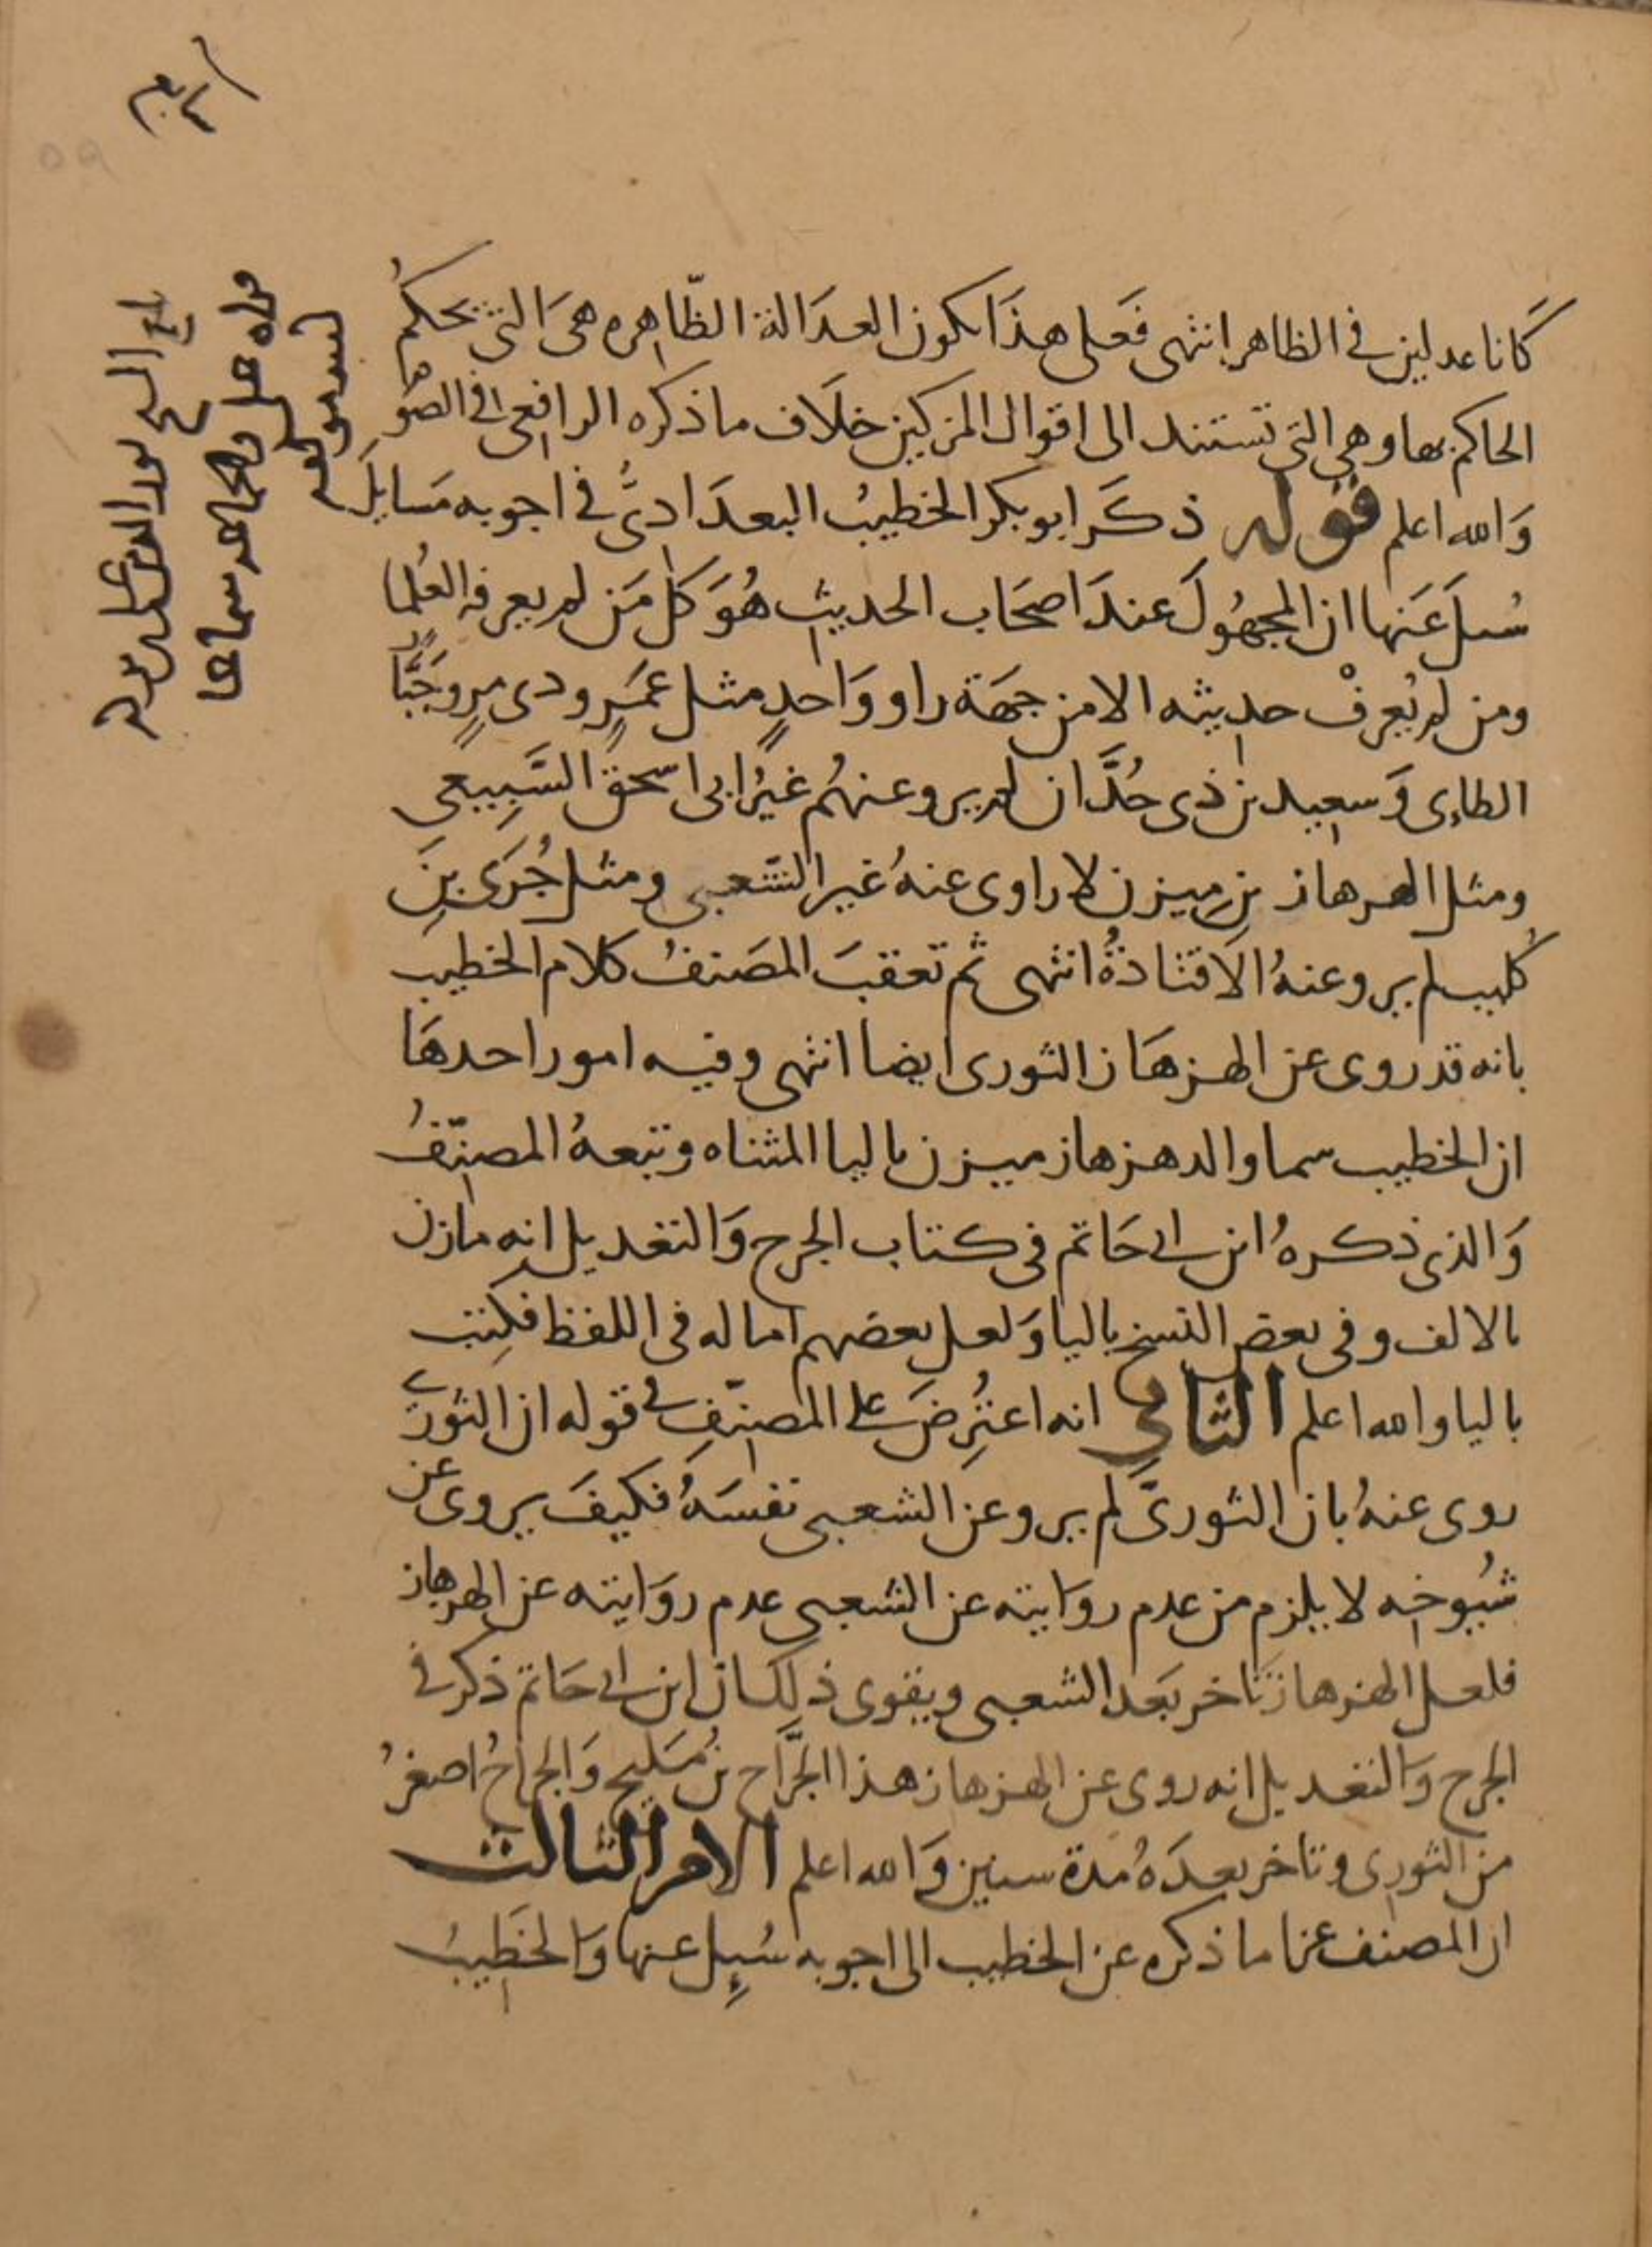 كَانا عدلين في الظاهر انتهى فَعلى هذَا تكون العدَالة الظّاهره هىَ التى يحكمُ
الحاكم بها وهى التى تستند الى اقوال المزكين خلَاف ما ذكره الرافعى فى الصوم
وَالله اعلم قوله ذكَر ابو بكر الخطيبُ البعدَادىُّ فى اجوبه مَسايلَ
سُىلَ عَنها ان المجهُولَ عندَ اصحَاب الحديث هُوَ كل مَن لم يعرفه العُلما
ومن لم يُعرفْ حديثه الا من جهَة راو وَاحدٍ مثل عمَرٍو ذى مرٍ وجَبَّار
الطاءى وَسعيد بن ذى حُدَّان لم يرو عنهُم غيرُ ابى اسحق السَّبِيعى
ومثل الهزهاز بنِ مِيزن لا راوى عنهُ غير الشعبى ومثل جُرَى بنِ
كُليب لم يرو عنهُ الَا قتادةُ انتهى ثم تعقبَ المصَنفُ كلام الخطيب
بانه قد روى عن الهزهَاز الثورى ايضا انتهى وفيه امور احدهَا
ان الخطيب سما والد هزهاز ميزن باليا المثناه وتبعهُ المصنّفُ
وَالذى ذكرهُ ابن ابى حَاتم فى كتاب الجرح وَالتعديل انه مازن
بالالف وفى بعض النسخ باليا وَلعل بعضهم اماله فى اللفظ فكُتِب
باليا والله اعلم الثانى انه اعتُرِضَ على المصنّفِ فى قوله ان الثورى
روى عنهُ بان الثورىَّ لم يرو عن الشعبى نفسَهُ فكيفَ يروى عن
شُيوخه لا يلزم من عدم روَايته عن الشعبى عدم روَايته عن الهزهاز
فلعل الهزهاز تَاخر بَعد الشعبى ويقوى ذلك ان ابن ابى حَاتم ذكر فى
الجرح وَالتعديل انه روى عن الهزهاز هذا الجَرَّاح بنُ مَليح وَالجراحُ اصغرُ
من الثورى وتاخر بعدَهُ مُدة سنين وَالله اعلم الامر الثالث
ان المصنف عزا ما ذكره عن الخطيب الى اجوبه سُىِل عنها وَالخَطِيبُ